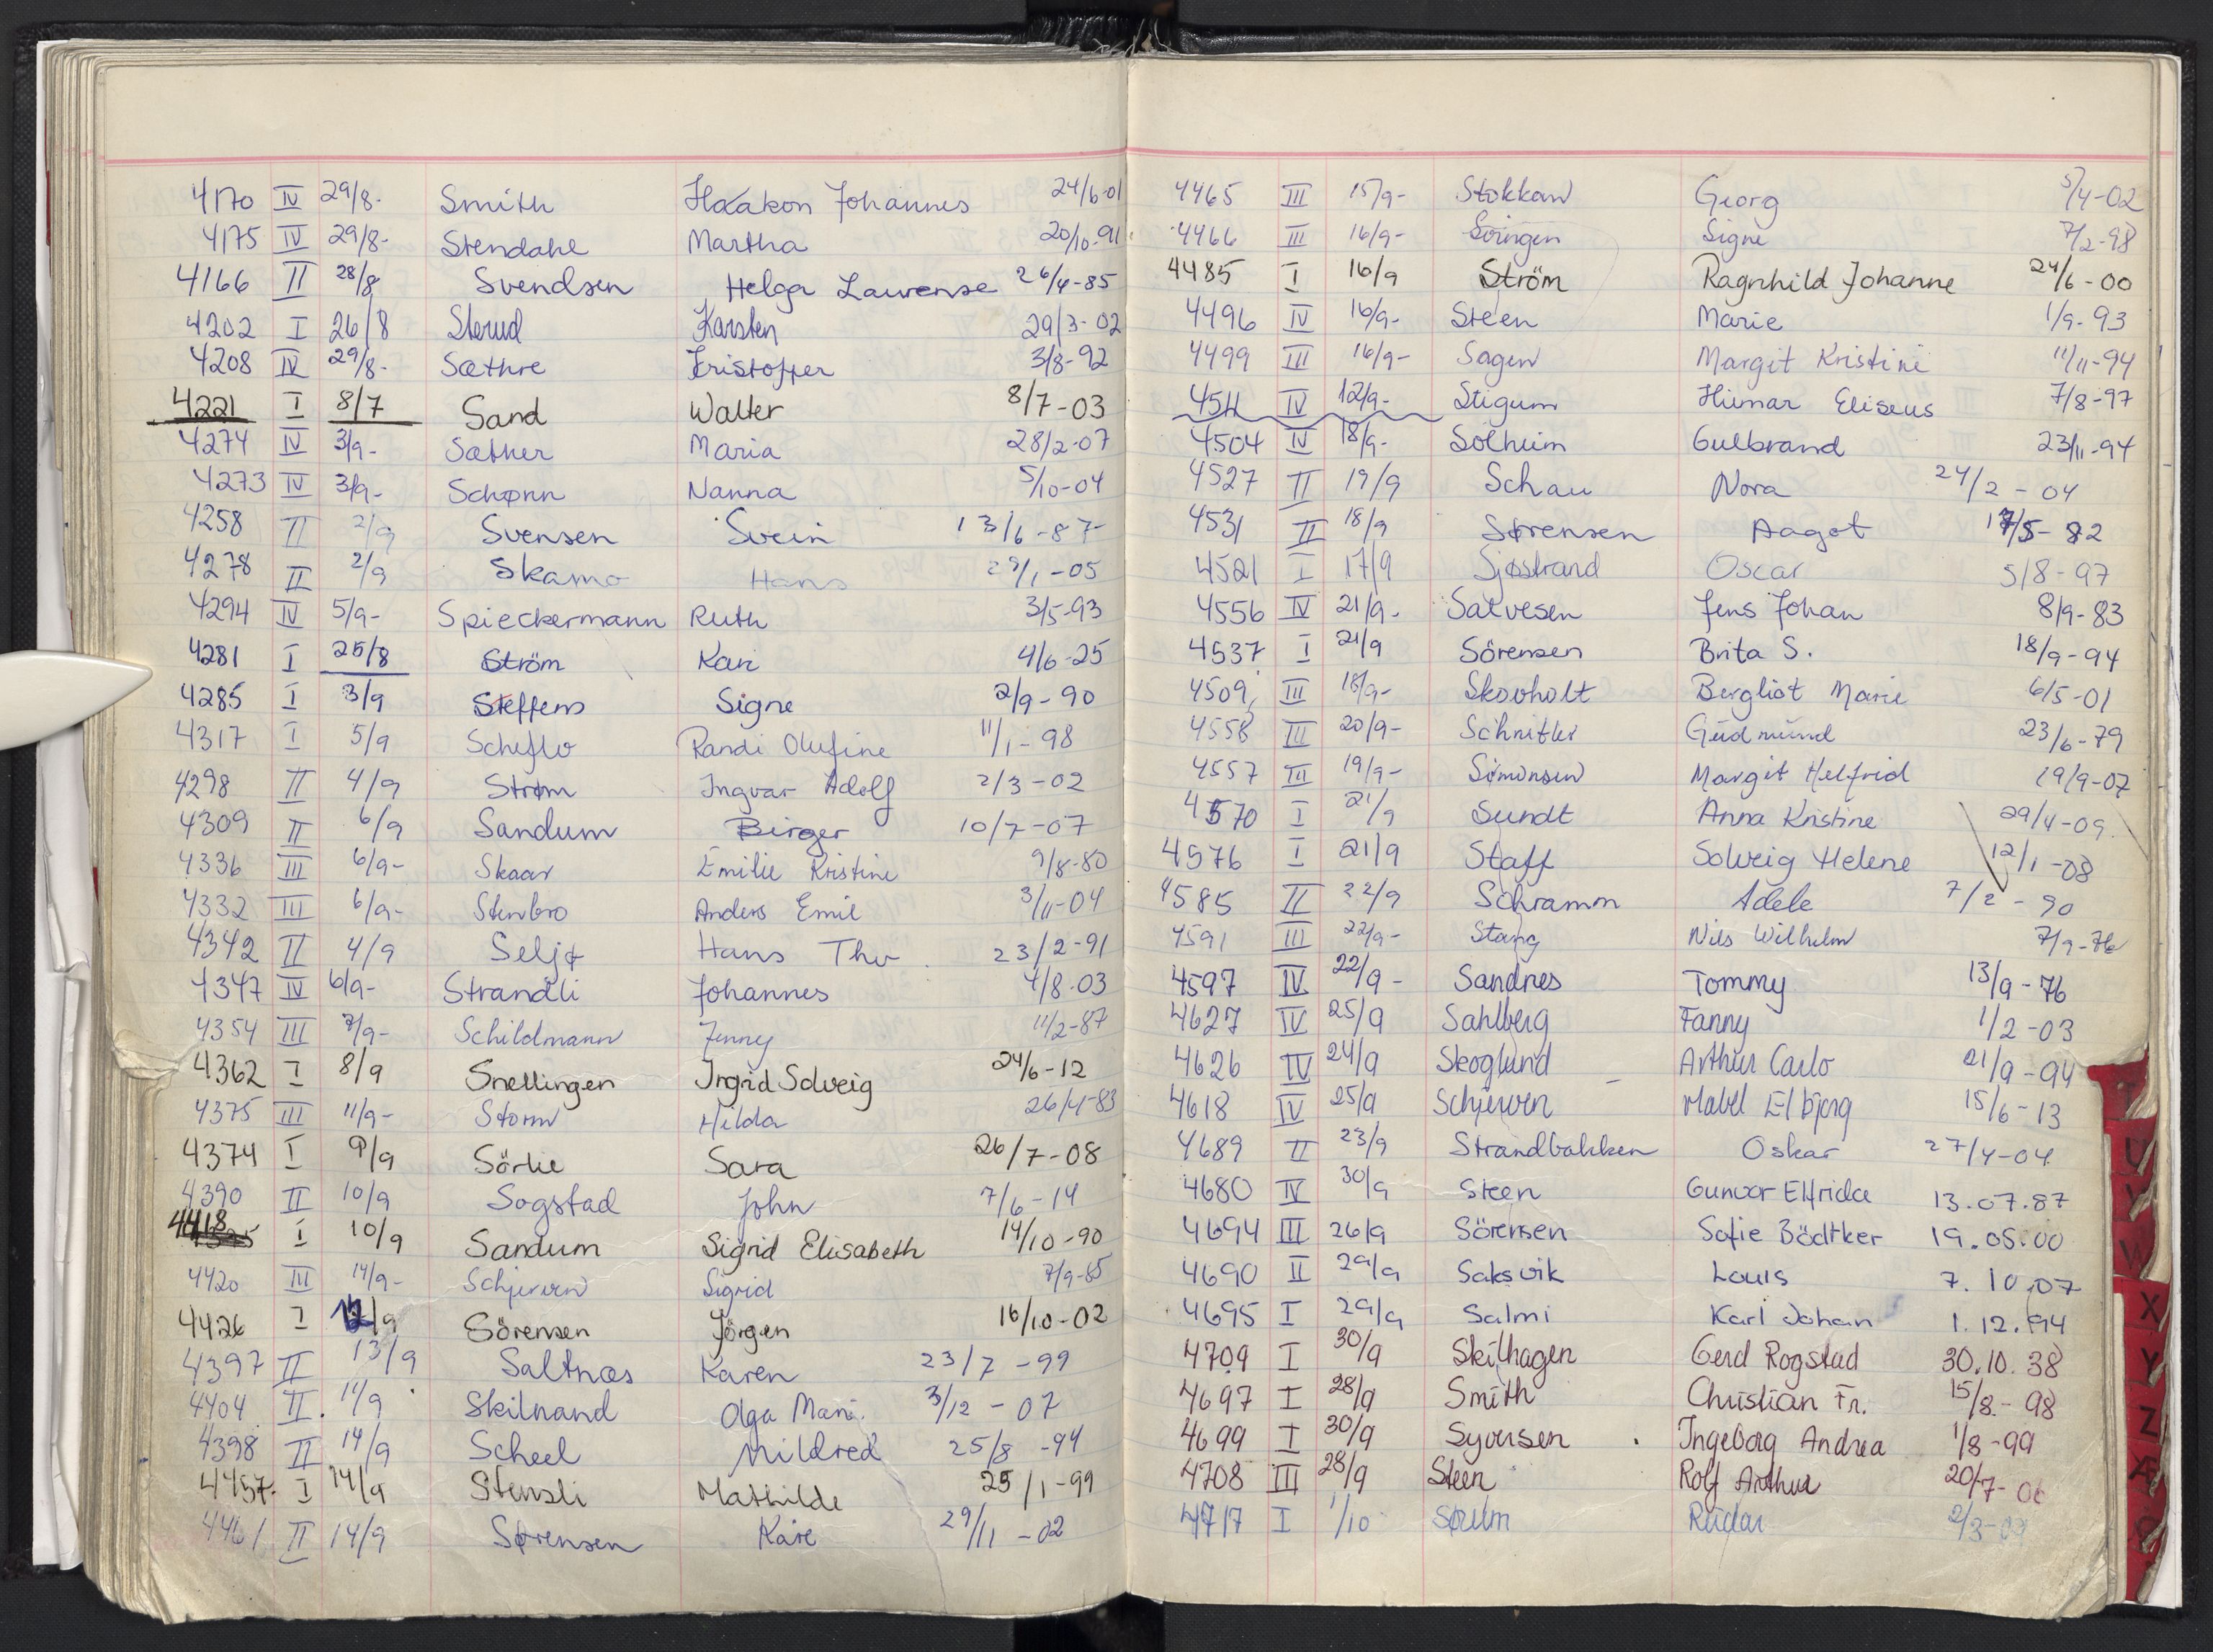 4170 IV 29/8- Smith Haakon Johannes 24/6-01
4175 IV 29/8- Stendahl Martha 20/10-91
4166 II 28/8 Svendsen Helga Laurense 26/4-85
4202 I 26/8 Sterud Karsten 29/3-02
4208 IV 29/8- Sæthre Kristoffer 3/8-92
4221 I 8/7 Sand Walter 8/7-03
4274 IV 3/9- Sæther Maria 28/2-07
4273 IV 3/9- Schønn Nanna 5/10-04
4258 II 2/9 Svensen Svein 13/6-87
4278 II 2/9 Skamo Hans 29/1-05
4294 IV 5/9- Spieckermann Ruth 3/5-93
4281 I 25/8 Ström Kari 4/6-25
4285 I 3/9 Steffens Signe 2/9-90
4317 I 5/9 Scheflo Randi Olufine 11/1-98
4298 II 4/9 Strøm Ingvar Adolf 2/3-02
4309 II 6/9 Sandum Birger 10/7-07
4336 III 6/9- Skaar Emilie Kristine 9/8-80
4332 III 6/9- Stenbro Anders Emil 3/11-04
4342 II 4/9 Seljø Hans Thv. 23/2-91
4347 IV 6/9- Strandli Johannes 4/8-03
4354 III 7/9- Schildmann Jenny 11/2-87
4362 I 8/9 Snellingen Ingrid Solveig 24/6-12
4375 III 11/9- Storm Hilda 26/4-83
4374 I 9/9 Sörlie Sara 26/7-08
4390 II 10/9 Sogstad John 7/6-14
4418 I 10/9 Sandum Sigrid Elisabeth 14/10-90
4420 III 14/9- Schjerven Sigrid 7/9-85
4426 I 12/9 Sörensen Jörgen 16/10-02
4397 II 13/9 Saltnæs Karen 23/7-99
4404 II 11/9 Skilnand Olga Marie 3/12-07
4398 II 14/9 Scheel Mildred 25/8-94
4457 I 14/9 Stensli Mathilde 25/1-99
4461 II 14/9 Sørensen Kåre 29/11-02
4465 III 15/9- Stokkan Georg 5/4-02
4466 III 16/9- Svingen Signe 7/2-98
4485 I 16/9 Ström Ragnhild Johanne 24/6-00
4496 IV 16/9- Steen Marie 1/9-93
4499 III 16/9- Sagen Margit Kristine 11/11-94
4511 IV 12/9- Stigum Hilmar Eliseus 7/8-97
4504 IV 18/9- Solheim Gulbrand 23/11-94
4527 II 19/9 Schau Nora 24/2-04
4531 II 18/9 Sørensen Aagot 17/5-82
4521 I 17/9 Sjøstrand Oscar 5/8-97
4556 IV 21/9- Salvesen Jens Johan 8/9-83
4537 I 21/9 Sörensen Brita S. 18/9-94
4509 III 18/9- Skovholt Bergliot Marie 6/5-01
4558 III 20/9- Schnitler Gudmund 23/6-79
4557 III 19/9- Simonsen Margit Helfrid 19/9-07
4570 I 21/9 Sundt Anna Kristine 29/4-09
4576 I 21/9 Staff Solveig Helene 12/1-08
4585 II 22/9 Schramm Adele 7/2-90
4591 III 22/9- Stang Nils Wilhelm 7/9-76
4597 IV 22/9- Sandnes Tommy 13/9-76
4627 IV 25/9 Sahlberg Fanny 1/2-03
4626 IV 24/9 Skoglund Arthur Carlo 21/9-94
4618 IV 25/9 Schjerven Mabel Elbjørg 15/6-13
4689 II 23/9 Strandbakken Oskar 27/4-04
4680 IV 30/9 Steen Gunvor Elfrida 13.07.87
4694 III 26/9 Sörensen Sofie Bödtker 19.05.00
4690 II 29/9 Saksvik Louis 7.10.07
4695 I 29/9 Salmi Karl Johan 1.12.94
4709 I 30/9 Skilhagen Gerd Rogstad 30.10.38
4697 I 28/9 Smith Christian Fr. 15/8-98
4699 I 30/9 Syversen Ingeborg Andrea 1/8-99
4708 III 28/9 Steen Rolf Arthur 20/7-
4717 I 1/10 Sørum Reidar 2/3-
U
V
W
X
Y
Z
Æ